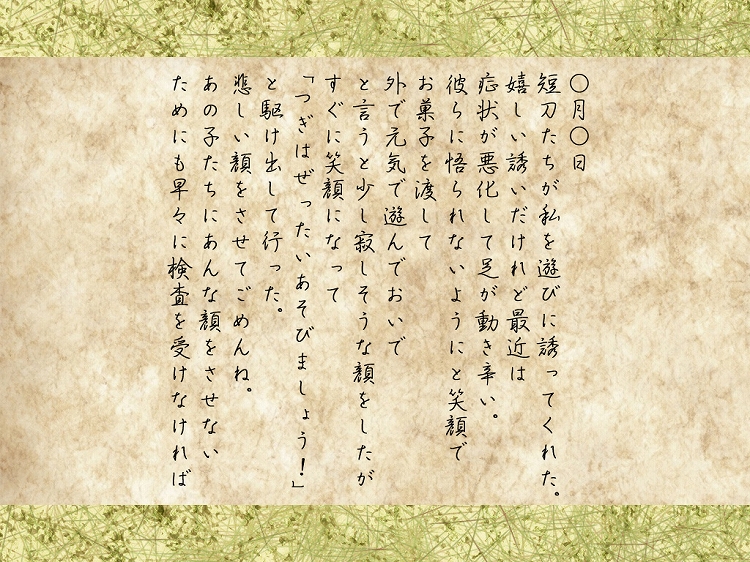 〇月〇日
短刀たちが私を遊びに誘ってくれた。
嬉しい誘いだけれど最近は
症状が悪化して足が動き辛い。
彼らに悟られないようにと笑顔で
お菓子を渡して
外で元気で遊んでおいで
と言うと少し寂しそうな顔をしたが
すぐに笑顔になって
「つぎはぜったいあそびましょう！」
と駆け出して行った。
悲しい顔をさせてごめんね。
あの子たちにあんな顔をさせない
ためにも早々に検査を受けなければ